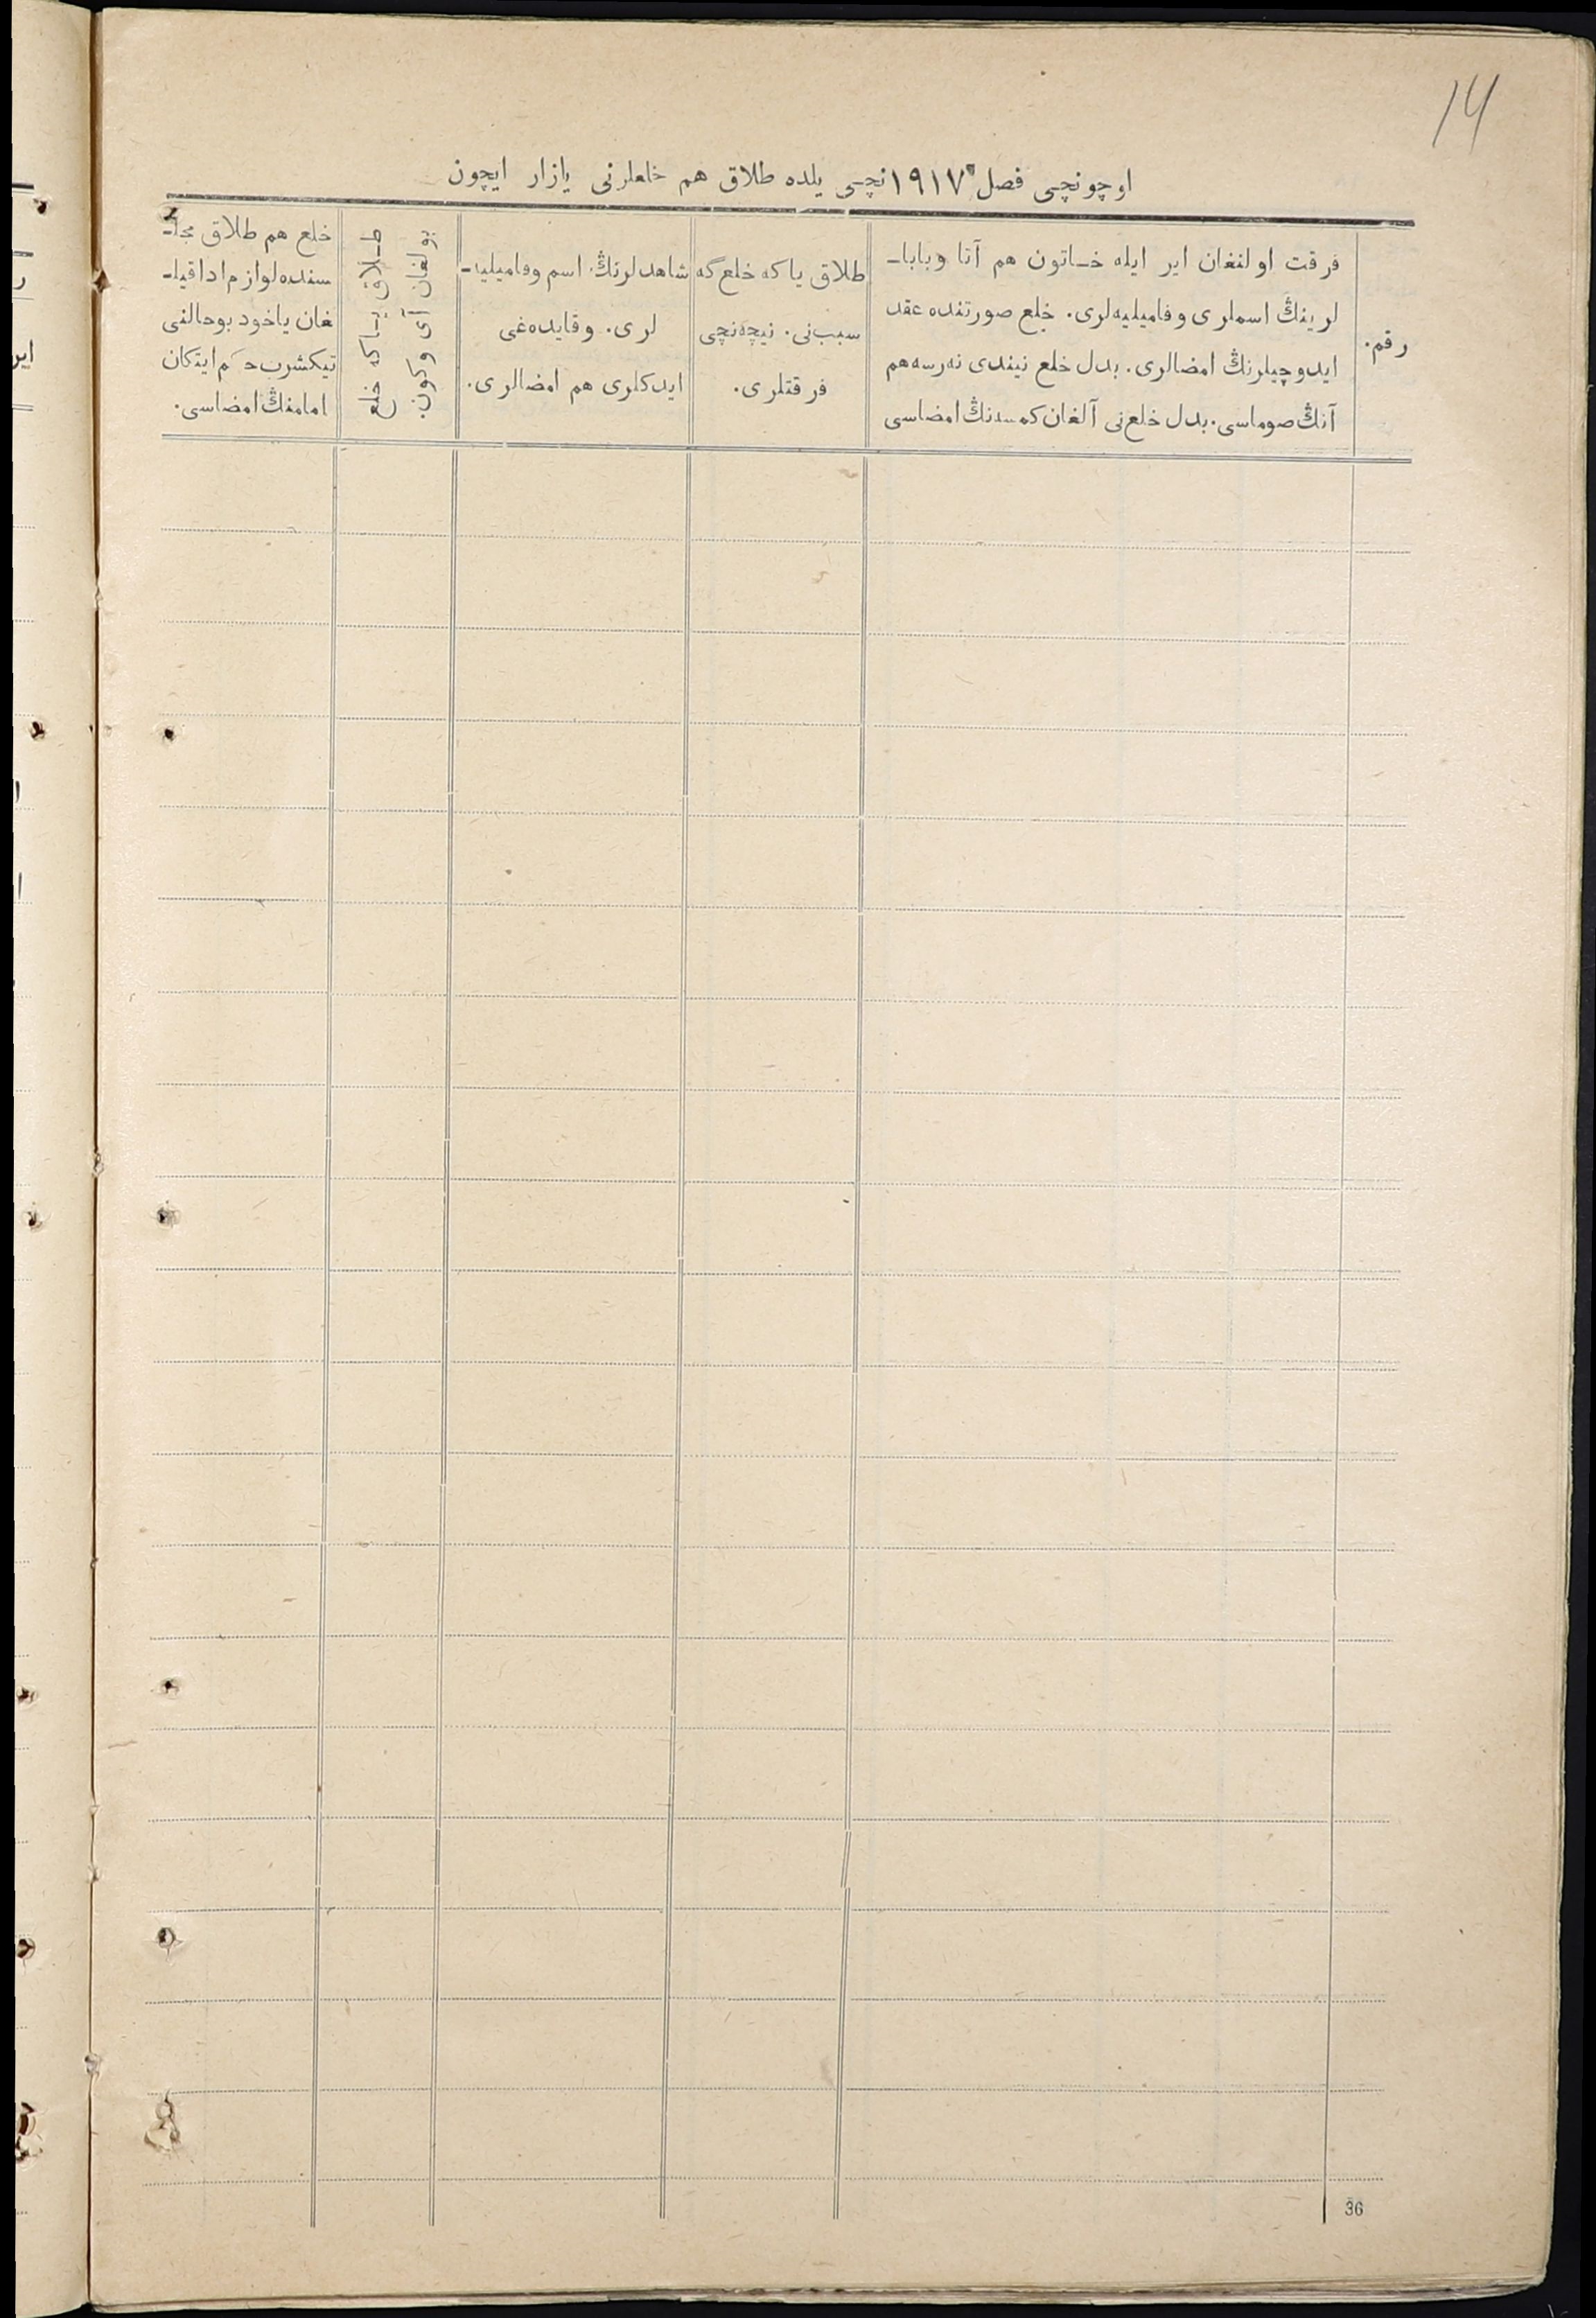 14
اوچونچی فصل ١٩١٧نچی یلده طلاق هم خلعلرنی یازار ایچون
رقم.
فرقت اولنغان ایر ایله خـاتون هم آتا وبابا-
لرینڭ اسملری وفامیلیه‌لری. خلع صورتنده عقد
ایدوچیلرنڭ امضالری. بدل خلع نیندی نه‌رسه هم
آنڭ صوماسی. بدل خلع‌نی آلغان کمسه‌نڭ امضاسی
طلاق یاکه خلع گه
سبب‌نی. نیچه‌نچی
فرقتلری.
شاهدلرنڭ اسم وفامیلیه-
لری. وقایده‌غی
ایدکلری هم امضالری.
طـلاق یـاکه خلع
بولغان آی وکون.
خلع هم طلاق مجلـ
سنده لوازم ادا قیلـ
غان یاخود بوحالنی
تیکشرب حکم ایتکان
امامنڭ امضاسی.
36